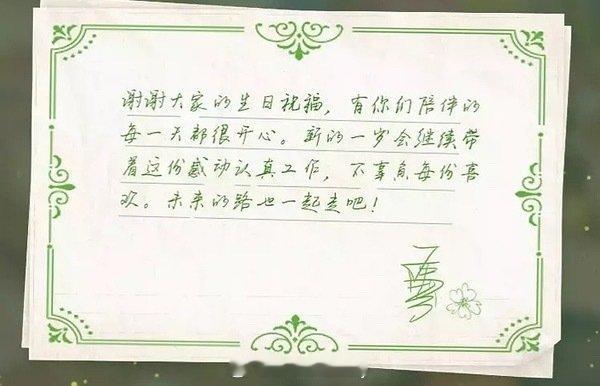 谢谢大家的生日祝福，有你们陪伴的
每一天都很开心。新的一岁会继续带
着这份感动认真工作，不辜负每份喜
欢。未来的路也一起走吧！